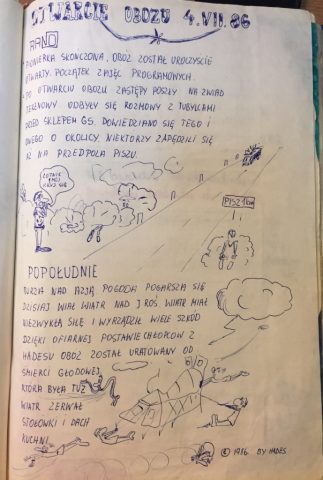 OTWARCIE OBOZU 4.VII.86
RANO
PIONIERKA SKOŃCZONA, OBÓZ ZOSTAŁ UROCZYŚCIE
OTWARTY. POCZĄTEK ZAJĘĆ PROGRAMOWYCH.
PO OTWARCIU OBOZU ZASTĘPY POSZŁY NA ZWIAD
TERENOWY ODBYŁY SIĘ ROZMOWY Z TUBYLCAMI
PRZED SKLEPEM GS. DOWIEDZIANO SIĘ TEGO I
OWEGO O OKOLICY, NIEKTÓRZY ZAPĘDZILI SIĘ
AŻ NA PRZEDPOLA PISZU.
PISZ 1 km
POPOŁUDNIE
BURZA NAD AZJĄ POGODA POGARSZA SIĘ
DZISIAJ WIAŁ WIATR NAD J ROŚ WIATR MIAŁ
NIEZWYKŁĄ SIŁĘ I WYRZĄDZIŁ WIELE SZKÓD
DZIĘKI OFIARNEJ POSTAWIE CHŁOPCÓW Z
HADESU OBÓZ ZOSTAŁ URATOWANY OD
ŚMIERCI GŁODOWEJ,
KTÓRA BYŁA TUŻ
WIATR ZERWAŁ
STOŁÓWKI I DACH
KUCHNI
© 1986. BY HADES